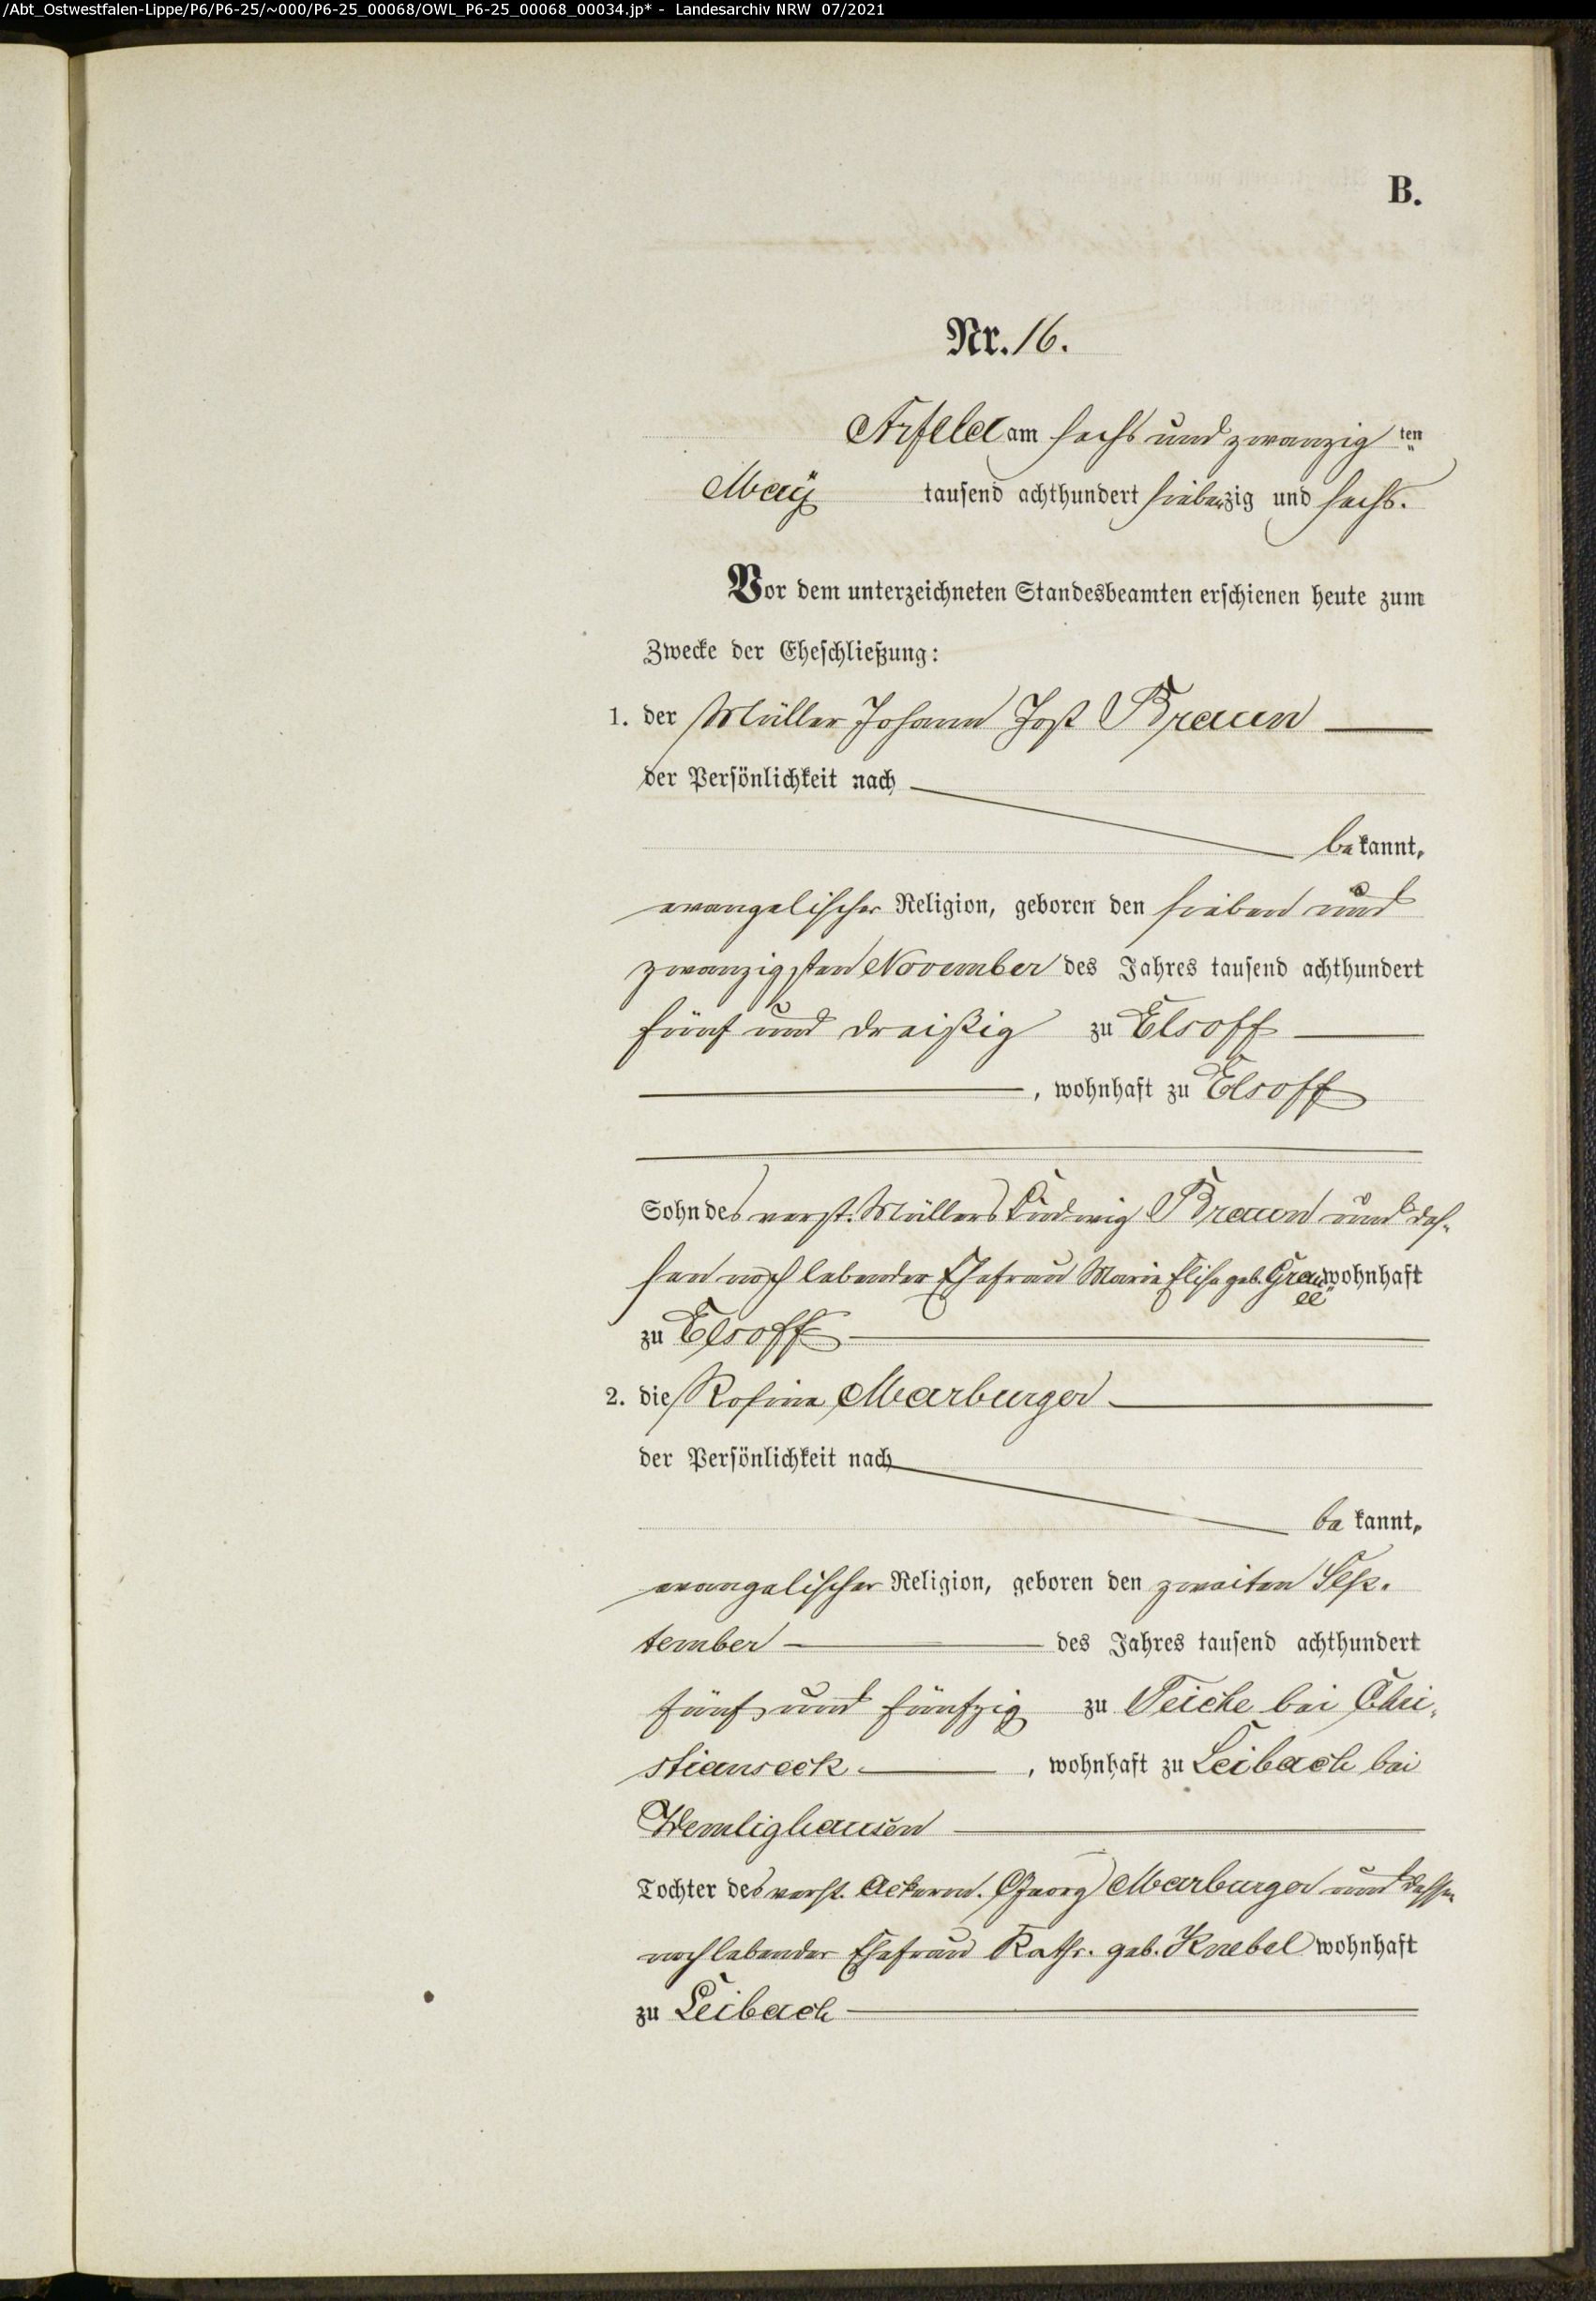 /Abt_Ostwestfalen-Lippe/P6/P6-25/~000/P6-25_00068/OWL_P6-25_00068_00034.jp* - Landesarchiv NRW 07/2021
B.
Nr. 16.
Arfeld am sechs und zwanzig ten
May tausend achthundert siebenzig und sechs.
Vor dem unterzeichneten Standesbeamten erschienen heute zum
Zwecke der Eheschließung:
1. der Müller Johann Jost Braun
der Persönlichkeit nach
bekannt,
evangelischer Religion, geboren den sieben und
zwanzigsten November des Jahres tausend achthundert
fünf und dreißig zu Elsoff
, wohnhaft zu Elsoff
Sohn des verst. Müllers Ludwig Braun und des-
sen noch lebender Ehefrau Marie Elise geb. wohnhaft
zu Elsoff
2. die Rosine Marburger
der Persönlichkeit nach
bekannt,
evangelischer Religion, geboren den zweiten Sep-
tember des Jahres tausend achthundert
fünf und fünfzig zu Teiche bei Chri-
stianseck, wohnhaft zu Leibach bei
Wemlighausen
Tochter des verst. Ackerm. Georg Marburger und dessen
noch lebender Ehefrau Kathr. geb. Knebel wohnhaft
zu Leibach